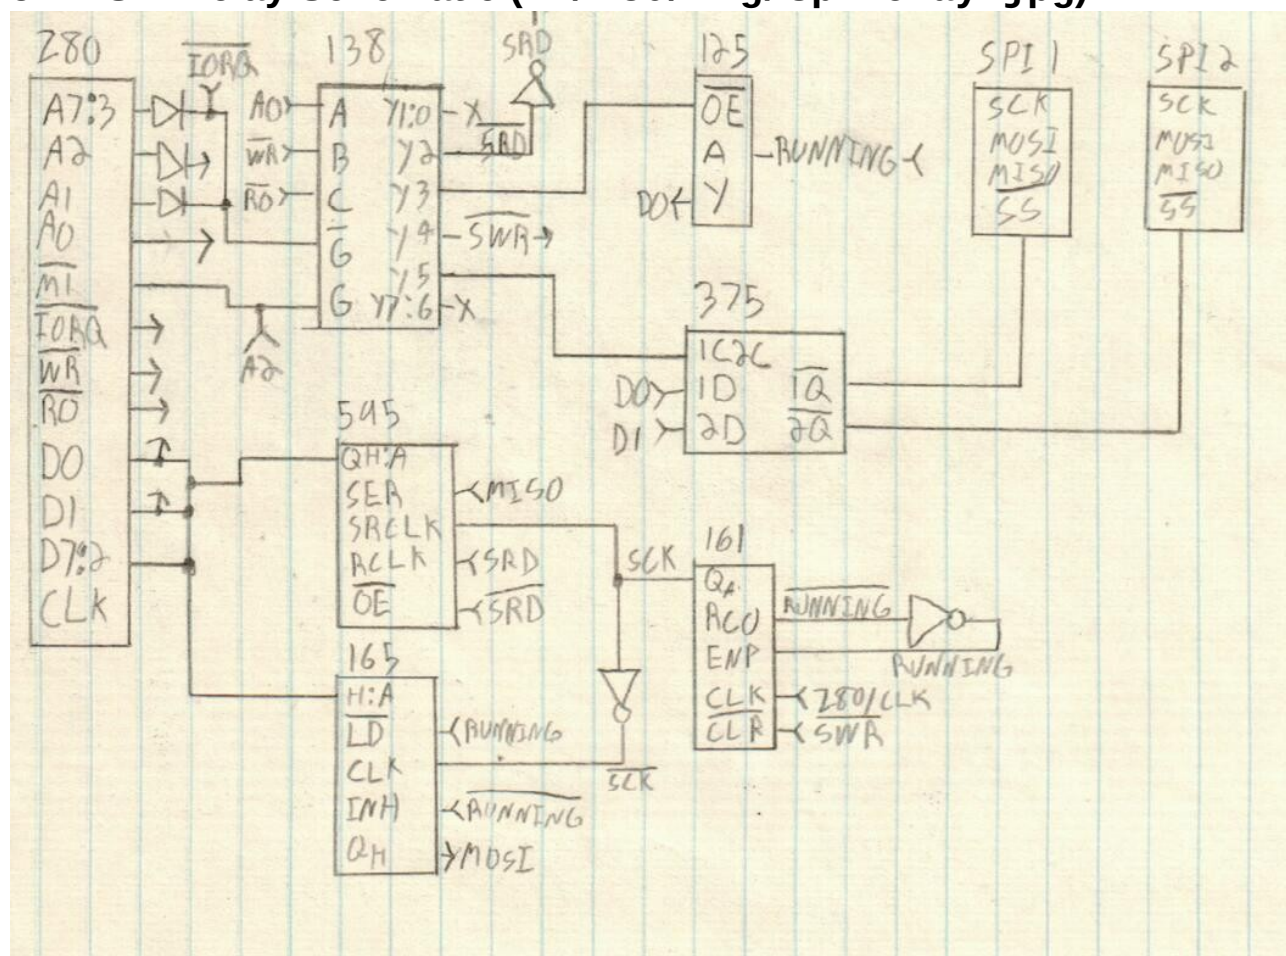 Z80
A7:3
A2
A1
A0
M1
IORQ
WR
RD
D0
D1
D7:2
CLK
IORQ
138
A0
WR
RD
A
B
C
G
G
Y1:0
Y2
Y3
Y4
Y5
Y7:6
X
SRD
SRD
SWR
X
A2
125
OE
A
Y
RUNNING
D0
SPI 1
SCK
MOSI
MISO
SS
SPI 2
SCK
MOSI
MISO
SS
375
1C2C
1D
2D
1Q
2Q
D0
D1
595
QH:A
SER
SRCLK
RCLK
OE
MISO
SRD
SRD
SCK
161
QA
RCO
ENP
CLK
CLR
RUNNING
RUNNING
Z80/CLK
SWR
165
H:A
LD
CLK
INH
QH
RUNNING
SCK
RUNNING
MOSI